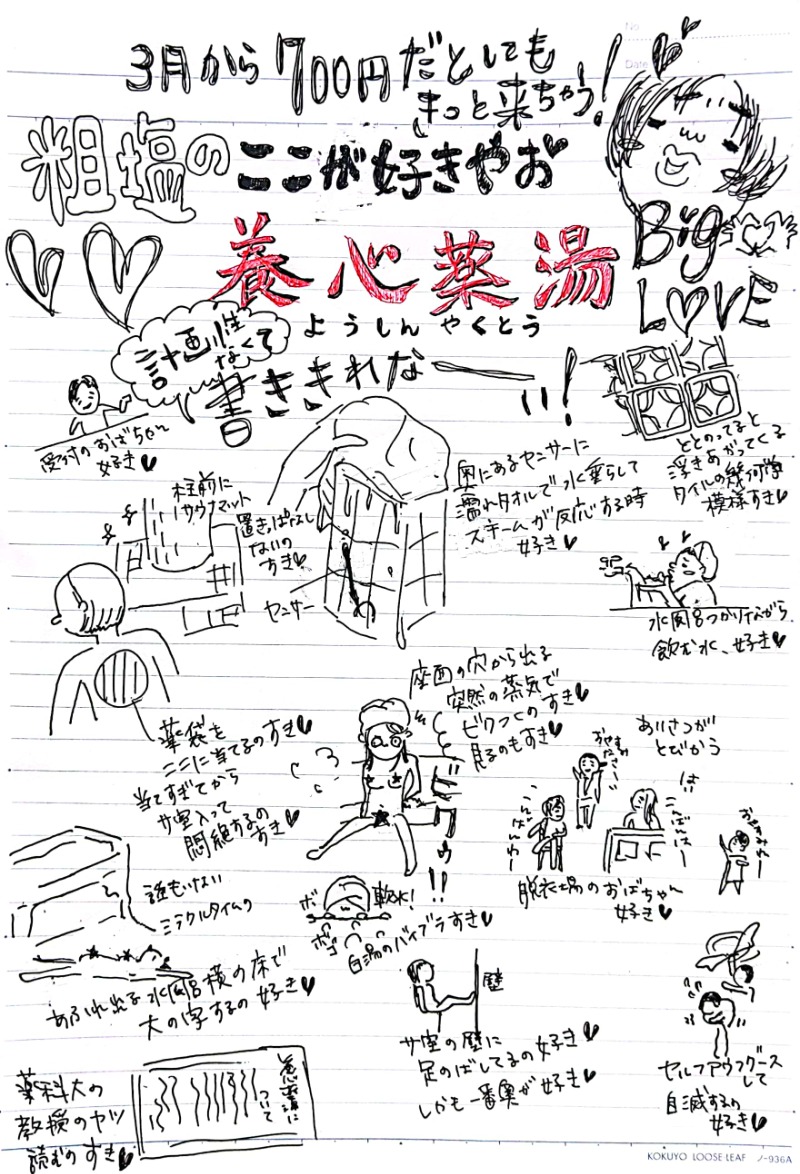 No
Date
3月から700円だとしても
きっと来ちゃう!
粗塩の
ここが好きやお
Big
LOVE
養心薬湯
ようしんやくとう
計画性
なくて
書ききれなーい!
受付のおばちゃん
好き
柱前に
サウナマット
置きっぱなし
ないの
すき
センサー
奥にあるセンサーに
濡れタオルで水垂らして
スチームが反応する時
好き
ととのってると
浮きあがってくる
タイルの幾何学
模様すき
水風呂つかりながら
飲む水、好き
薬袋を
ここに当てるのすき
当てすぎてから
サ室入って
悶絶するの
すき
座面の穴から出る
突然の蒸気で
ビクつくのすき
見るのもすき
あいさつが
とびかう
はい
こんばんはー
おやすみ
なさーい
こんばんわー
脱衣場のおばちゃん
好き
誰もいない
ミラクルタイムの
あふれ出る水風呂横の床で
大の字するの好き
ボ
ボ
軟水!
白湯のバイブラすき
!!
壁
サ室の壁に
足のばしてるの好き
しかも一番奥が好き
セルフアウフグース
して
自滅するの
好き
薬科大の
教授のヤツ
読むのすき
ついて
KOKUYO LOOSE LEAF ノ-936A